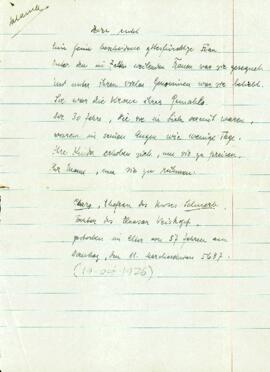 Hier ruht
Eine feine bescheidene gottesfürchtige Frau
Unter den in Zelten weilenden Frauen war sie gesegnet
und unter ihren vielen Genossinnen war sie beliebt.
Sie war die Krone ihres Gemahls.
Die 30 Jahre, die sie in Liebe vereint waren,
waren in seinen Augen wie wenige Tage.
Ihre Kinder erhoben sich, um sie zu preisen,
Ihr Mann, um sie zu rühmen.
Ehefrau des Moses
Tochter des Elieser
gestorben im Alter von 57 Jahren am
Dienstag, den 11. Marcheschwan 5687.
(19 Okt 1926)